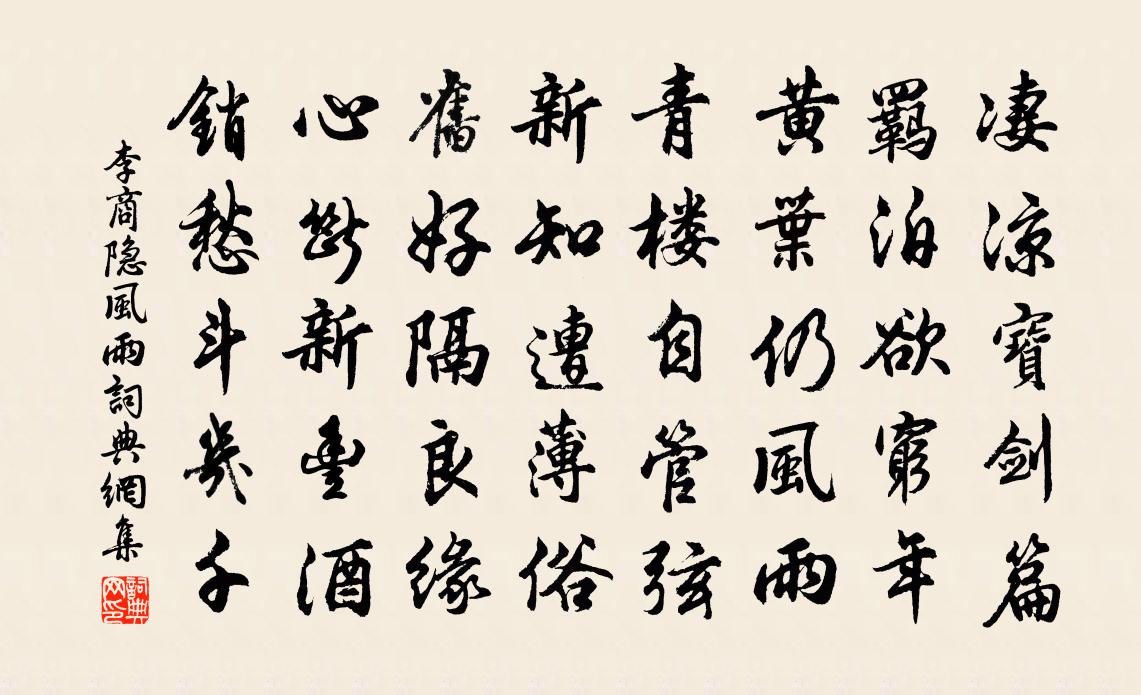 淒涼寶劍篇
羈泊欲窮年
黄葉仍風雨
青楼自管弦
新知遭薄俗
舊好隔良緣
心斷新豐酒
銷愁斗幾千
李商隐風雨詞典網集
詞典网印